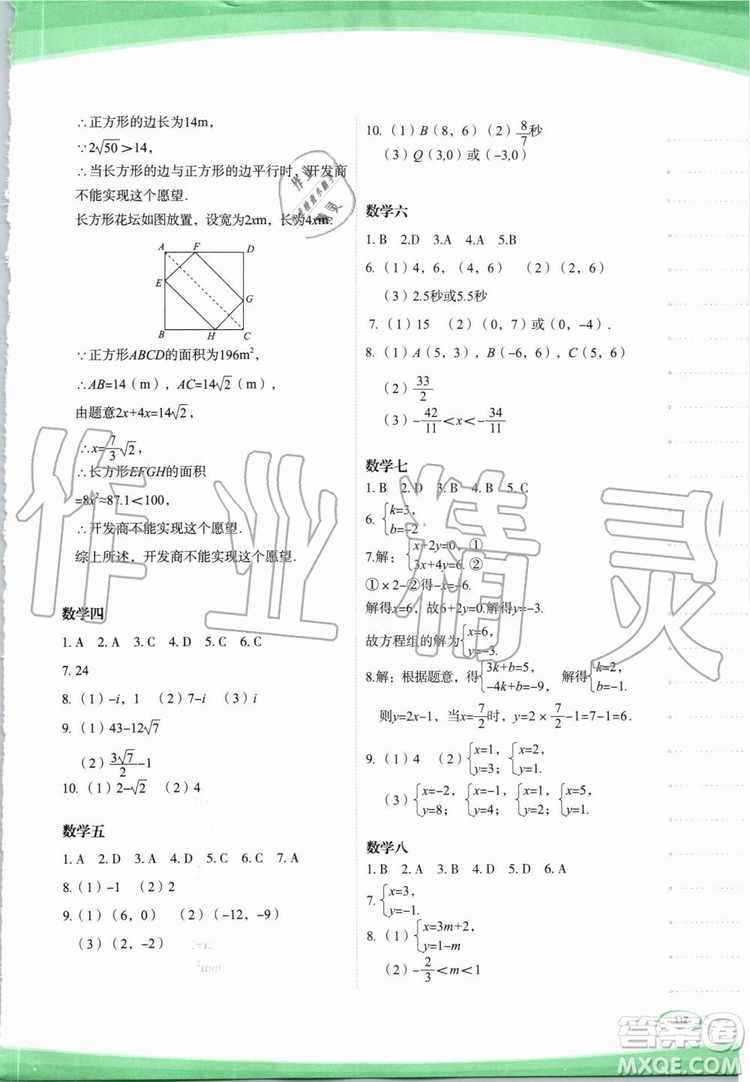 ∴正方形的边长为14m，
∵2√50＞14，
∴当长方形的边与正方形的边平行时，开发商
不能实现这个愿望．
长方形花坛如图放置，设宽为2xm，长为4xm．
A F D
E
G
B H C
∵正方形ABCD的面积为196m²，
∴AB=14（m），AC=14√2（m），
由题意2x+4x=14√2，
∴x=7/3√2，
∴长方形EFGH的面积
=8x²≈87.1＜100，
∴开发商不能实现这个愿望．
综上所述，开发商不能实现这个愿望．
数学四
1. A 2. A 3. C 4. D 5. C 6. C
7. 24
8.（1）-i，1 （2）7-i （3）i
9.（1）43-12√7
（2）3√7/2-1
10.（1）2-√2 （2）4
数学五
1. A 2. D 3. D 4. D 5. C 6. C 7. A
8.（1）-1 （2）2
9.（1）(6，0) （2）(-12，-9)
（3）(2，-2)
10.（1）B（8，6）（2）8/7秒
（3）Q（3,0）或（-3,0）
数学六
1. B 2.D 3.A 4.A 5.B
6.（1）4，6，（4，6） （2）（2，6）
（3）2.5秒或5.5秒
7.（1）15 （2）（0，7）或（0，-4）．
8.（1）A（5，3），B（-6，6），C（5，6）
（2）33/2
（3）-42/11＜x＜-34/11
数学七
1. B 2. D 3. D 4. B 5. C
6. {k=3，
b=-2
7.解：{x+2y=0，①
3x+4y=6. ②
①×2-②得-x=-6.
解得x=6，故6+2y=0.解得y=-3.
故方程组的解为{x=6，
y=-3.
8.解：根据题意，得{3k+b=5，
-4k+b=-9，
解得{k=2，
b=-1.
则y=2x-1，当x=7/2时，y=2×7/2-1=7-1=6.
9.（1）4 （2）{x=1，
y=3；
{x=2，
y=1.
（3）{x=-2，
y=8；
{x=-1，
y=6；
{x=1，
y=2.
数学八
1. B 2. A 3. C 4. D 5. D 6. A
7. {x=3，
y=1.
8.（1）{x=3m+2，
y=1-m
（2）-2/3＜m＜1
117
作业精灵
答案圈
MXQE.COM